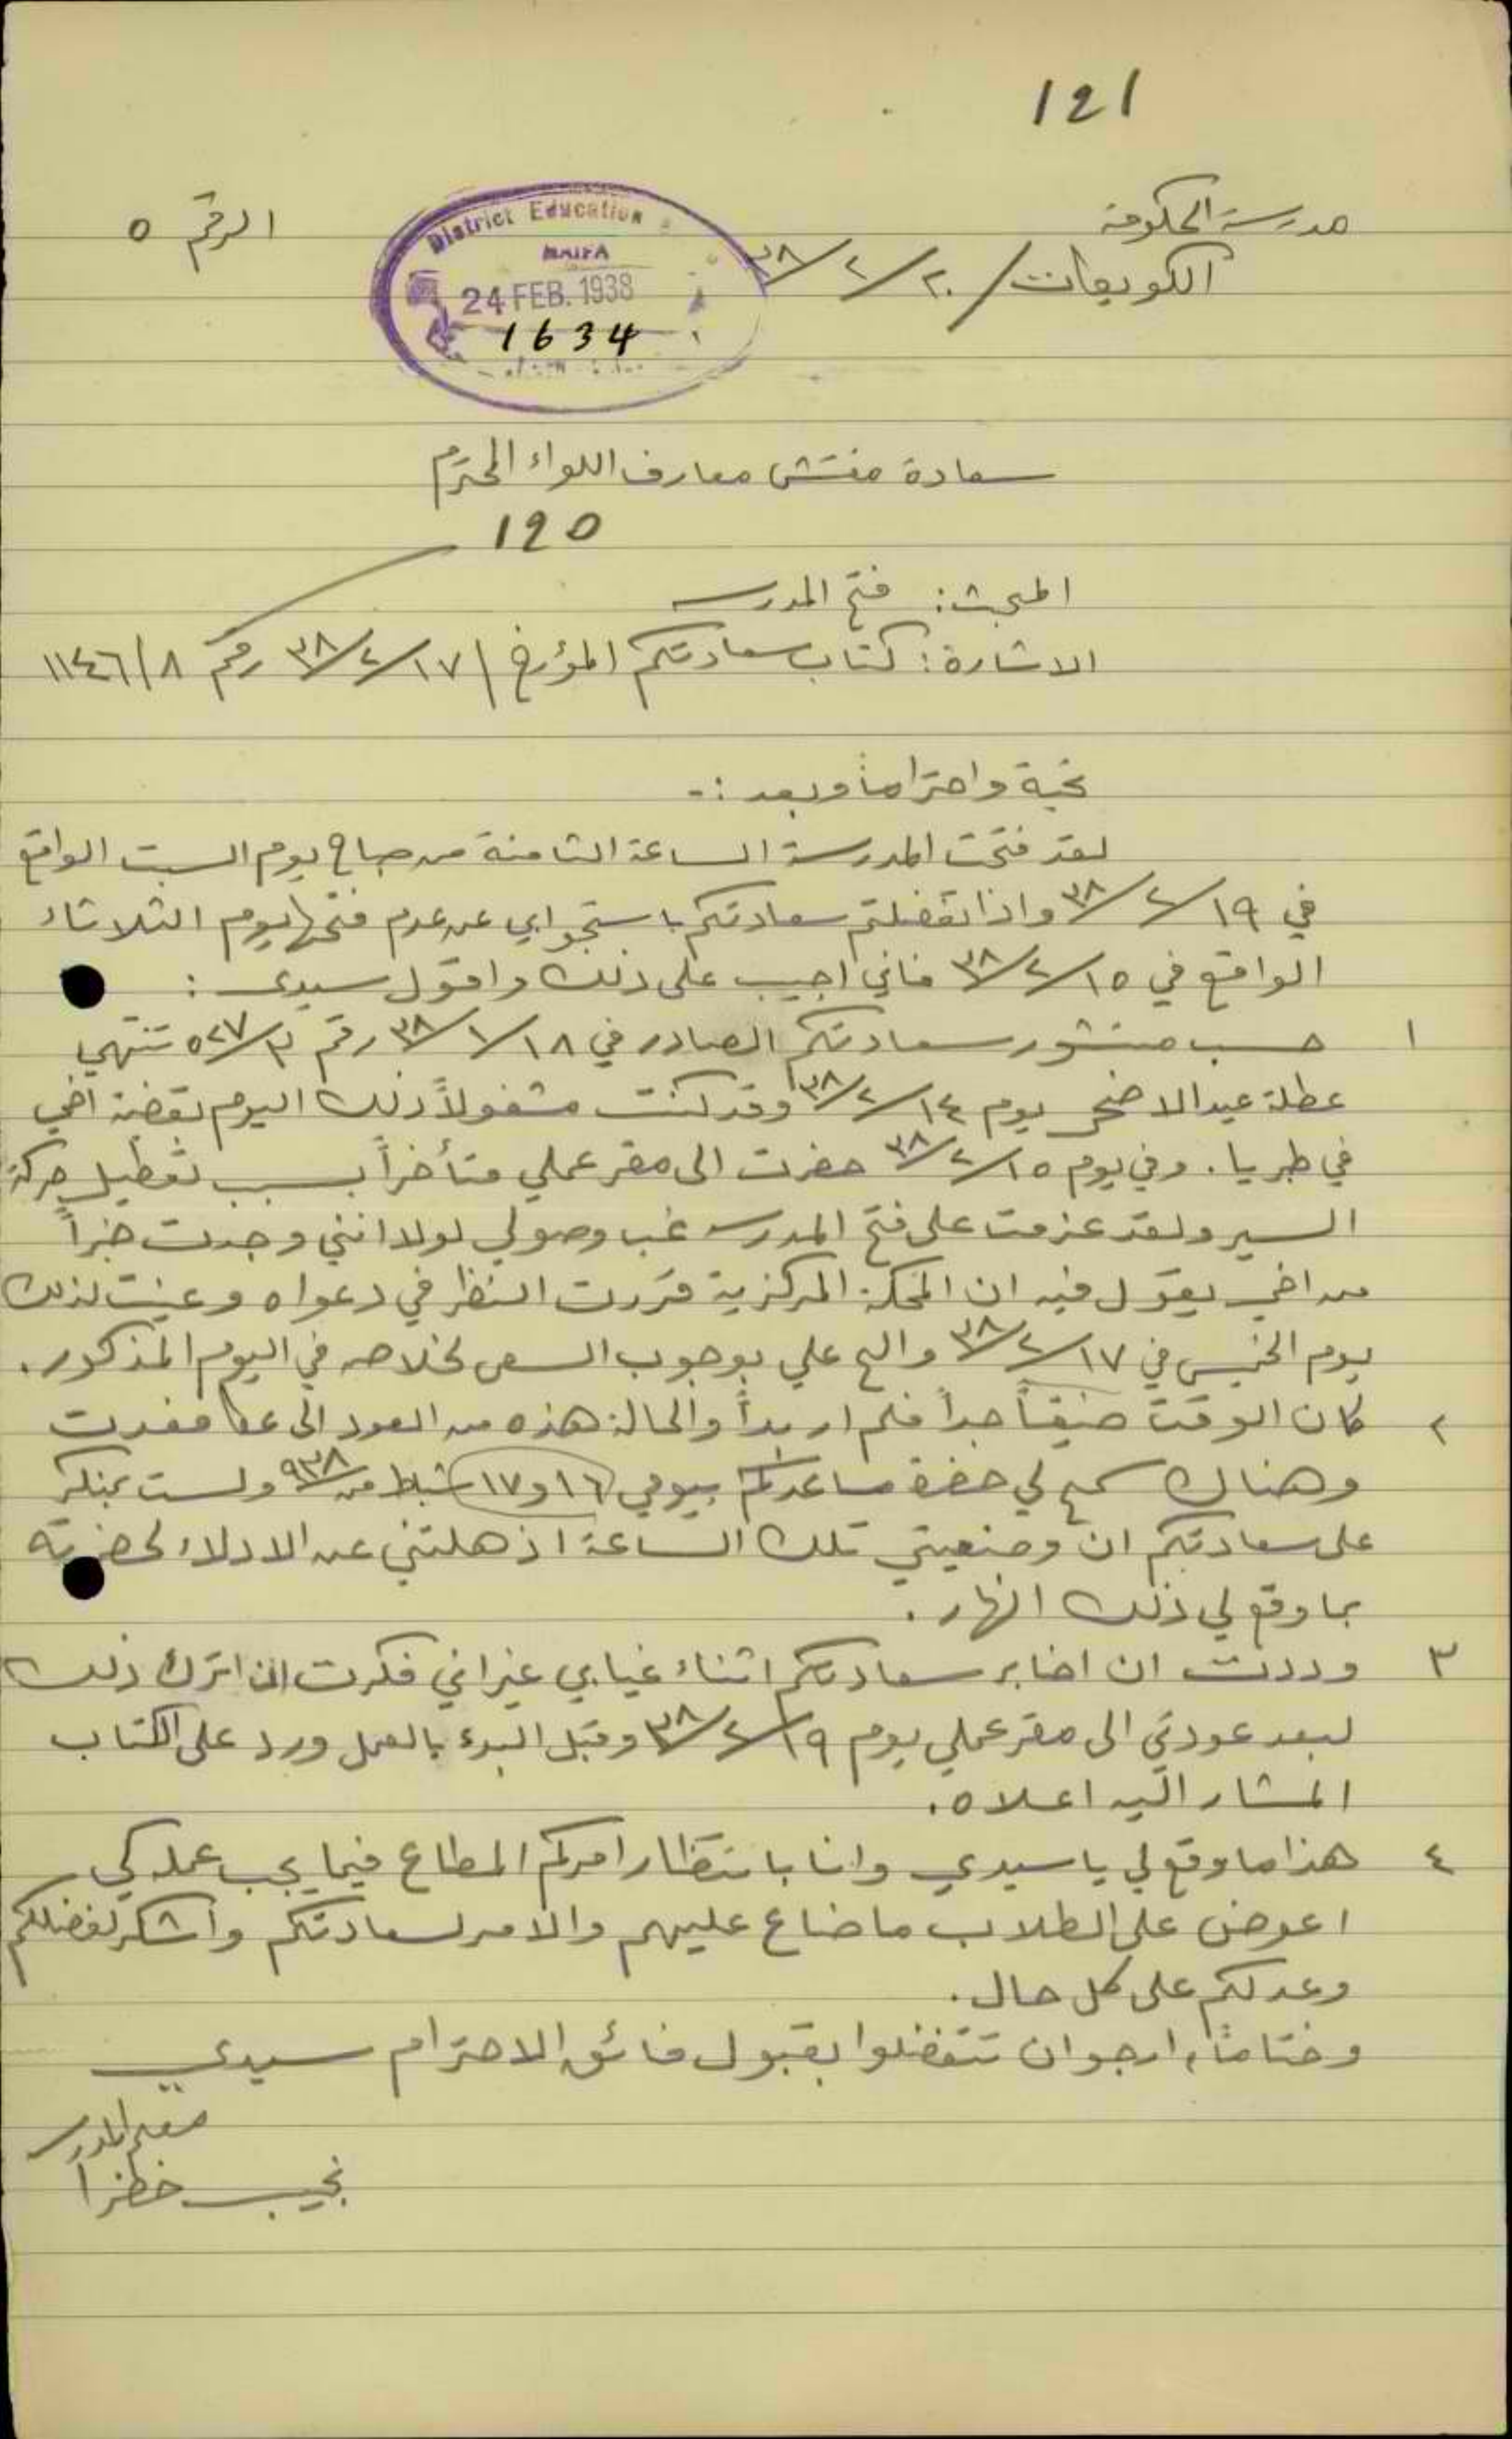 121
مدرسة الحكومة
الرقم ٥
الكويكات / ٢٠/٢/٣٨
District Education
HAIFA
24 FEB. 1938
1634
سعادة مفتش معارف اللواء المحترم
120
المبحث: فتح المدرسة
الاشارة: كتاب سعادتكم المؤرخ / ١٧/٢/٣٨ رقم ٨/١١٤٦
تحية واحتراما وبعد :-
لقد فتحت المدرسة الساعة الثامنة من صباح يوم السبت الواقع
في ١٩/٢/٣٨ واذا تفضلتم سعادتكم باستجوابي عن عدم فتحها يوم الثلاثاء
الواقع في ١٥/٢/٣٨ فاني اجيب على ذلك واقول سيدي :
١ حسب منشور سعادتكم الصادر في ١٨/١/٣٨ رقم ٣/٥٢٧ تنتهي
عطلة عيد الاضحى يوم ١٤/٢/٣٨ وقد كنت مشغولاً ذلك اليوم بقضية اخي
في طبريا. وفي يوم ١٥/٢/٣٨ حضرت الى مقر عملي متأخراً بسبب تعطيل حركة
السير ولقد عزمت على فتح المدرسة غب وصولي لولا انني وجدت خبراً
من اخي يقول فيه ان المحكمة المركزية قررت النظر في دعواه وعينت لذلك
يوم الخميس في ١٧/٢/٣٨ والح علي بوجوب السعي لخلاصه في اليوم المذكور.
٢ كان الوقت ضيقاً جداً فلم ار بداً والحالة هذه من العود الى عكا فعدت
وهناك سمح لي حضرة مساعدكم بيومي ١٦ و ١٧ شباط من ٩٣٨ ولست بمنكر
على سعادتكم ان وضعيتي تلك الساعة اذهلتني عن الادلاء لحضرته
بما وقع لي ذلك النهار.
٣ وددت ان اخابر سعادتكم اثناء غيابي غير اني فكرت ان اترك ذلك
لبعد عودتي الى مقر عملي يوم ١٩/٢/٣٨ وقبل البدء بالعمل ورد علي الكتاب
المشار اليه اعلاه.
٤ هذا ما وقع لي يا سيدي وانا بانتظار امركم المطاع فيما يجب عمله كي
اعوض على الطلاب ما ضاع عليهم والامر لسعادتكم واشكر لفضلكم
وعدلكم على كل حال.
وختاماً، ارجو ان تتفضلوا بقبول فائق الاحترام سيدي
معلم المدرسة
نجيب